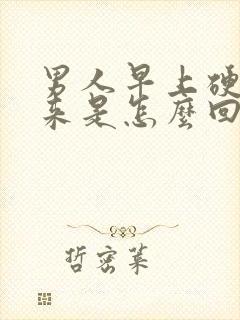 男人早上硬
来是怎麼回
哲密菜